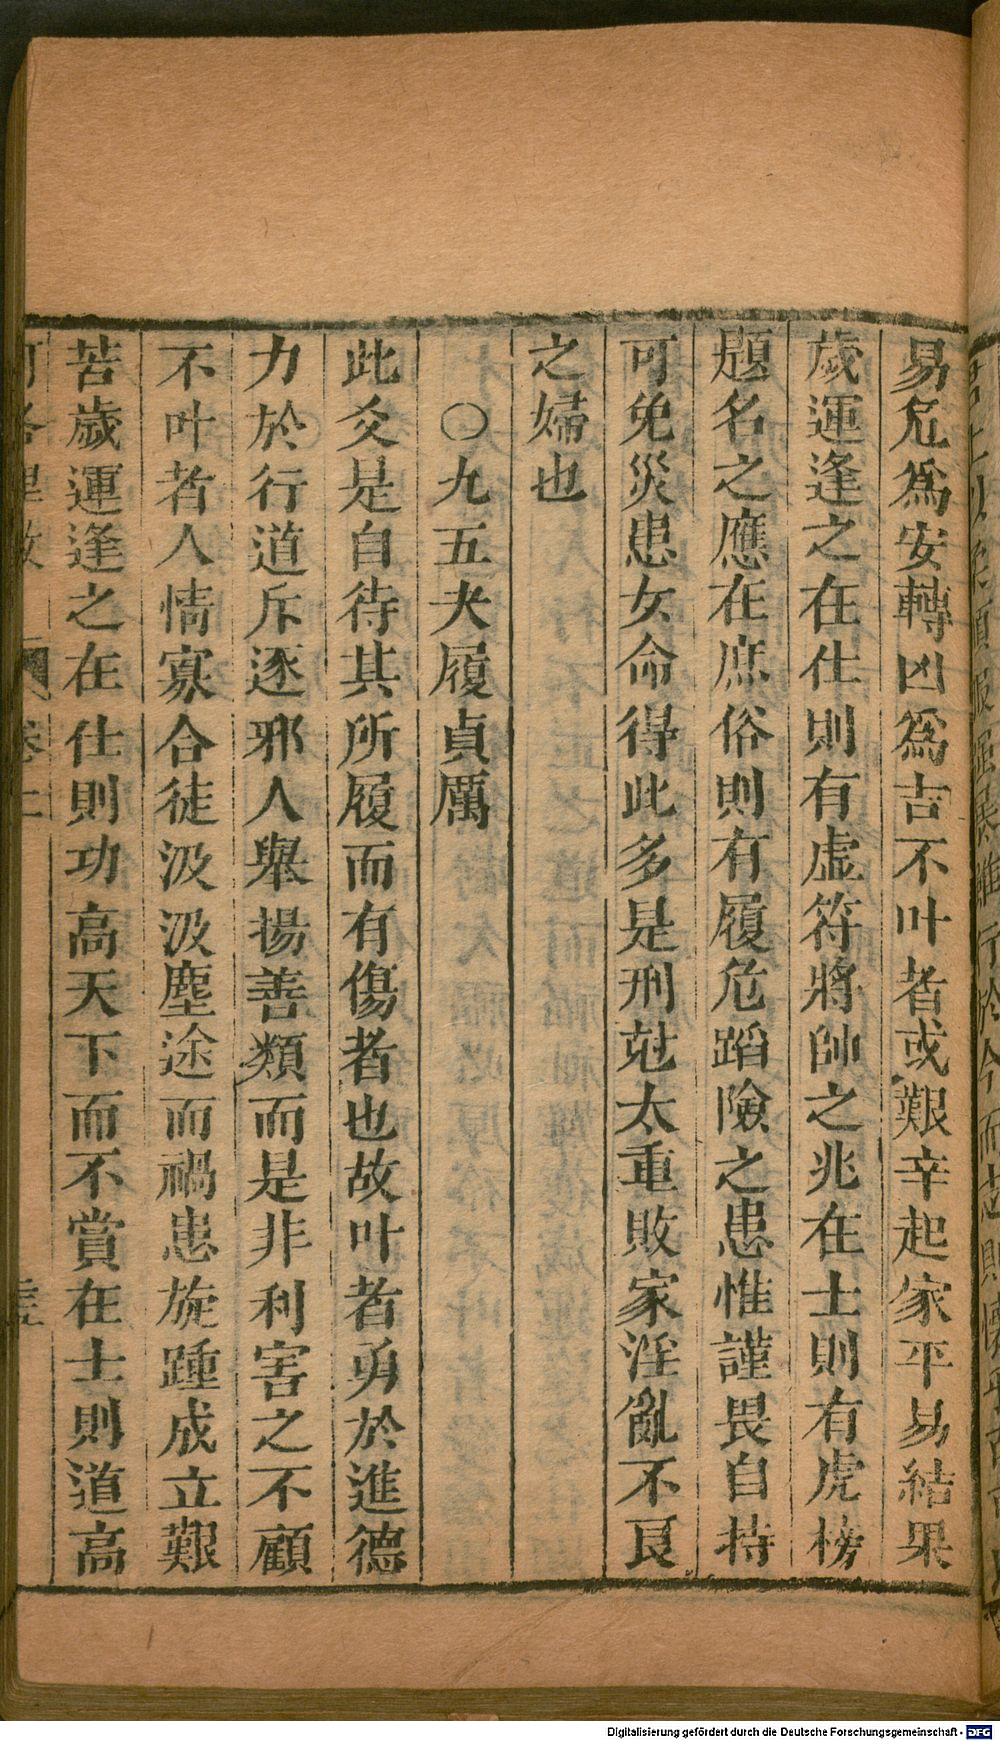 易危爲安轉凶爲吉不叶者或艱辛起家平易結果
歲運逢之在仕則有虛符將帥之兆在士則有虎榜
題名之應在庶俗則有履危蹈險之患惟謹畏自持
可免災患女命得此多是刑尅太重敗家淫亂不良
之婦也
○九五夬履貞厲
此爻是自待其所履而有傷者也故叶者勇於進德
力於行道斥逐邪人舉揚善類而是非利害之不顧
不叶者人情寡合徒汲汲塵途而禍患旋踵成立艱
苦歲運逢之在仕則功高天下而不賞在士則道高
卷上
Digitalisierung gefördert durch die Deutsche Forschungsgemeinschaft - DFG